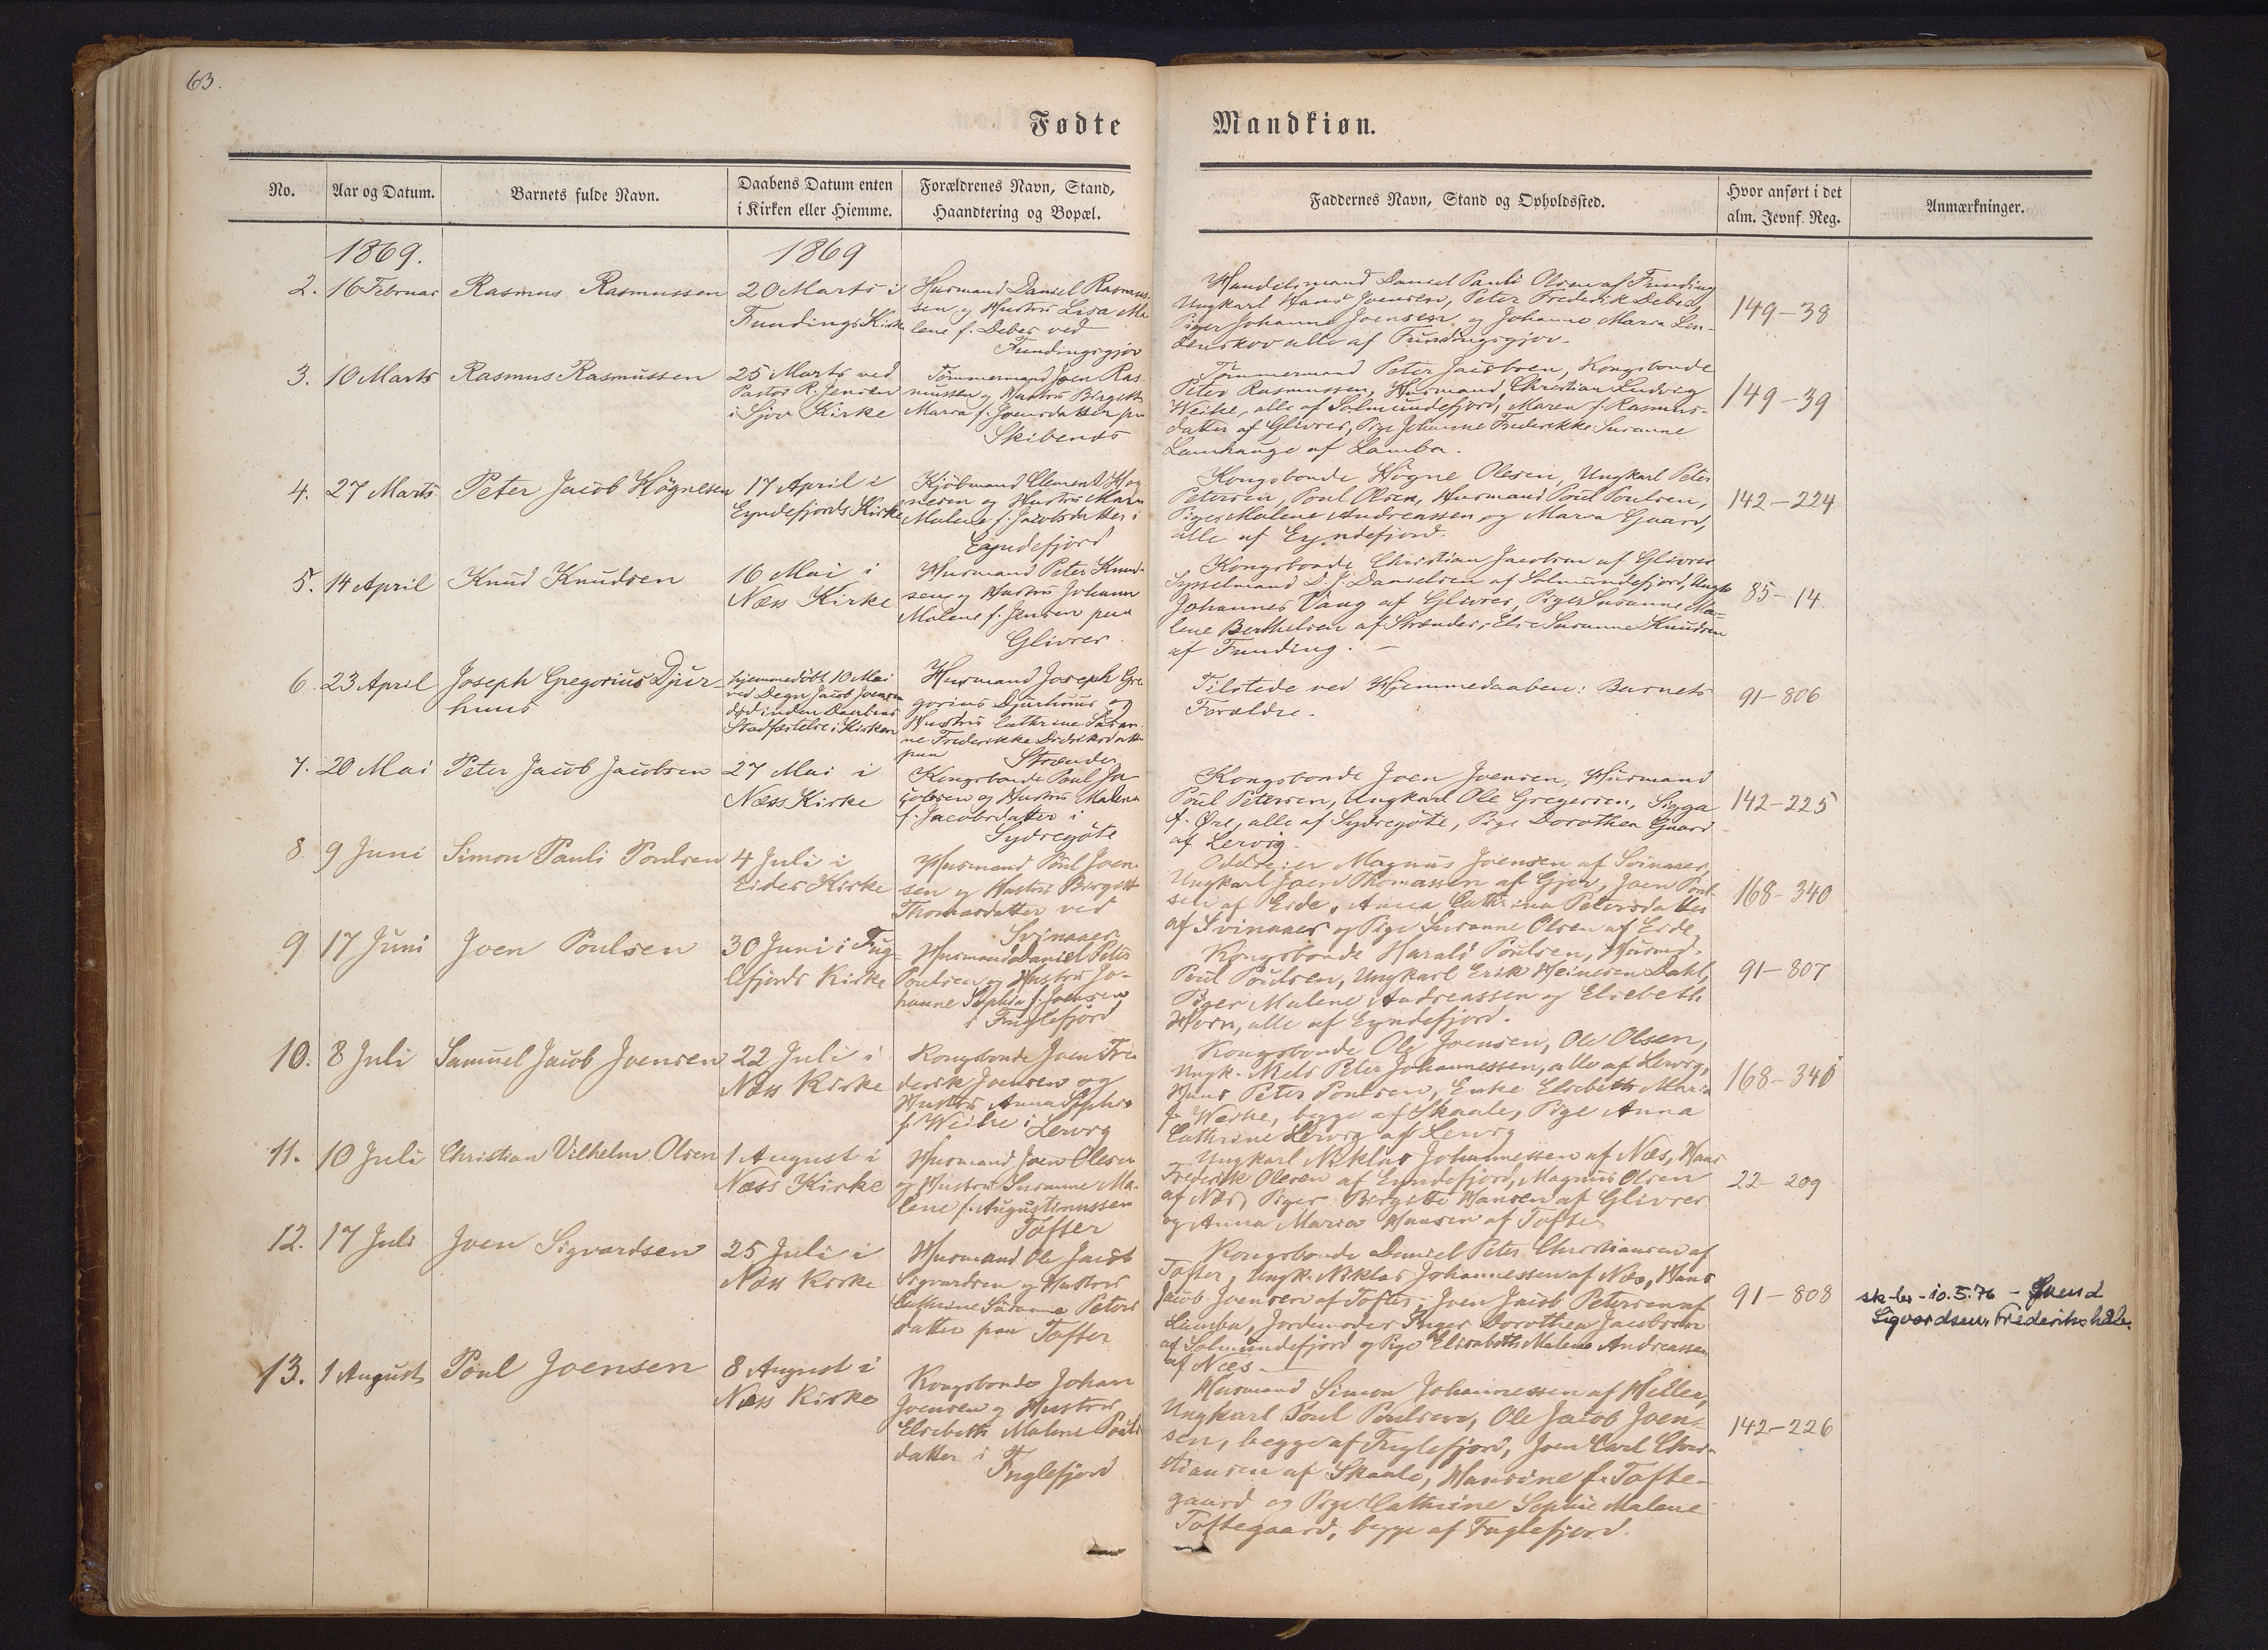 63.
Fødte
Mandkiøn.
No.
Aar og Datum.
Barnets fulde Navn.
Daabens Datum enten
i Kirken eller Hiemme.
Forældrenes Navn, Stand,
Haandtering og Bopæl.
Faddernes Navn, Stand og Opholdssted.
Hvor anført i det
alm. Jevnf. Reg.
Anmærkninger.
1869.
1869
2.
16 Februar
Rasmus Rasmussen
20 Marts i
Fundings Kirke
Husmand Daniel Rasmus-
sen og Hustru Lisa Ma-
lene f. Debes ved
Fundingsgjov
Handelsmand Daniel Pauli Olsen af Funding
Ungkarl Hans Joensen, Peter Frederik Debes,
Piger Johanne Joensen og Johanne Maria Lin-
denskov alle af Fundingsgjov.
149-38
3.
10 Marts
Rasmus Rasmussen
25 Marts ved
Pastor R. Jensen
i Gjov Kirke
Tømmermand Joen Ras-
mussen og Hustru Birgitte
Maria f. Joensdatter paa
Skibenæs
Tømmermand Peter Jacobsen, Kongsbonde
Peter Rasmussen, Husmand Christian Ludvig
Weihe, alle af Solmundefjord, Maren f. Rasmus-
datter af Glivrer, Pige Johanne Frederikke Susanne
Lamhauge af Lamba.
149-39
4.
27 Marts
Peter Jacob Høgnesen
17 April i
Eyndefjords Kirke
Kjøbmand Clement Høg-
nesen og Hustru Maren
Malene f. Jacobsdatter i
Eyndefjord
Kongsbonde Høgne Olesen, Ungkarl Peter
Petersen, Poul Olsen, Husmand Poul Poulsen,
Piger Malene Andreassen og Maria Gaard,
alle af Eyndefjord.
142-224
5.
14 April
Knud Knudsen
16 Mai i
Næs Kirke
Husmand Peter Knud-
sen og Hustru Johanne
Malene f. Jensen paa
Glivrer.
Kongsbonde Christian Jacobsen af Glivrer
Sysselmand D. J. Danielsen af Solmundefjord, Ungk.
Johannes Vang af Glivrer, Piger Susanne Ma-
lene Berthelsen af Strænder, Else Susanne Knudsen
af Funding.
85-14
6.
23 April
Joseph Gregorius Djur-
huus
hjemmedøbt 10 Mai
ved Degn Jacob Joensen
død inden Daabens
Stadfæstelse i Kirken
Husmand Joseph Gre-
gorius Djurhuus og
Hustru Cathrine Susan-
ne Frederikke Didriksdatter
paa Strænder
Tilstede ved Hjemmedaaben: Barnets
Forældre.
91-806
7.
20 Mai
Peter Jacob Jacobsen
27 Mai i
Næs Kirke
Kongsbonde Poul Ja-
cobsen og Hustru Malene
f. Jacobsdatter i
Sydregøte
Kongsbonde Joen Joensen, Husmand
Poul Petersen, Ungkarl Ole Gregersen, Sigga
f. Øre, alle af Sydregøte, Pige Dorothea Gaard
af Lervig.
142-225
8
9 Juni
Simon Pauli Poulsen
4 Juli i
Eides Kirke
Husmand Poul Joen-
sen og Hustru Birgitte
Thomasdatter ved
Svinaaer
Magnus Joensen af Svinaaer,
Ungkarl Joen Thomassen af Gjov, Joen Poul-
sen af Eide, Anna Cathrina Petersdatter
af Svinaaer og Pige Susanne Olsen af Eide
168-340
9
17 Juni
Joen Poulsen
30 Juni i Fug-
lefjords Kirke
Husmand Daniel Peter
Poulsen og Hustru Jo-
hanne Sophia f. Joensen
i Fuglefjord
Kongsbonde Harald Poulsen, Husmd.
Poul Poulsen, Ungkarl Erik Heinesen Dahl,
Piger Malene Andreassen og Elsebeth
Horn, alle af Eyndefjord.
91-807
10.
8 Juli
Samuel Jacob Joensen
22 Juli i
Næs Kirke
Kongsbonde Joen Fre-
derik Joensen og
Hustru Anna Sophia
f. Weihe i Lervig
Kongsbonde Ole Joensen, Ole Olsen,
Ungk. Niels Peter Johannessen, alle af Lervig,
Hans Peter Poulsen, Enke Elsebeth Maria
f. Weihe, begge af Skaale, Pige Anna
Cathrine Lervig af Lervig
168-341
11.
10 Juli
Christian Vilhelm Olsen
1 August i
Næss Kirke
Husmand Joen Olesen
og Hustru Susanne Ma-
lene f. Augustinussen
Tofter
Ungkarl Niklas Johannessen af Næs, Hans
Frederik Olesen af Eyndefjord, Magnus Olsen
af Næs, Piger Birgitte Hansen af Glivrer
og Anna Maria Hansen af Tofter
22-209
12.
17 Juli
Joen Sigvardsen
25 Juli i
Næs Kirke
Husmand Ole Jacob
Sigvardsen og Hustru
Cathrine Susanne Peters
datter paa Tofter
Kongsbonde Daniel Peter Christiansen af
Tofter, Ungk. Niklas Johannessen af Næs, Hans
Jacob Joensen af Tofter, Joen Jacob Petersen af
Lamba, Jordemoder Inger Dorothea Jacobsen
af Solmundefjord og Pige Elisabeth Malene Andreassen
af Næs
91-808
sk-bs-10.5.76 - Svend
Sigvardsen, Frederikshåb.
13.
1 August
Poul Joensen
8 August i
Næs Kirke
Kongsbonde Johan
Joensen og Hustru
Elsebeth Malene Pouls
datter i
Fuglefjord
Husmand Simon Johannessen af Hellen,
Ungkarl Poul Poulsen, Ole Jacob Joen-
sen, begge af Fuglefjord, Joen Carl Chri-
stiansen af Skaale, Hansine f. Tofte-
gaard og Pige Cathrine Sophie Malene
Toftegaard, begge af Fuglefjord.
142-226